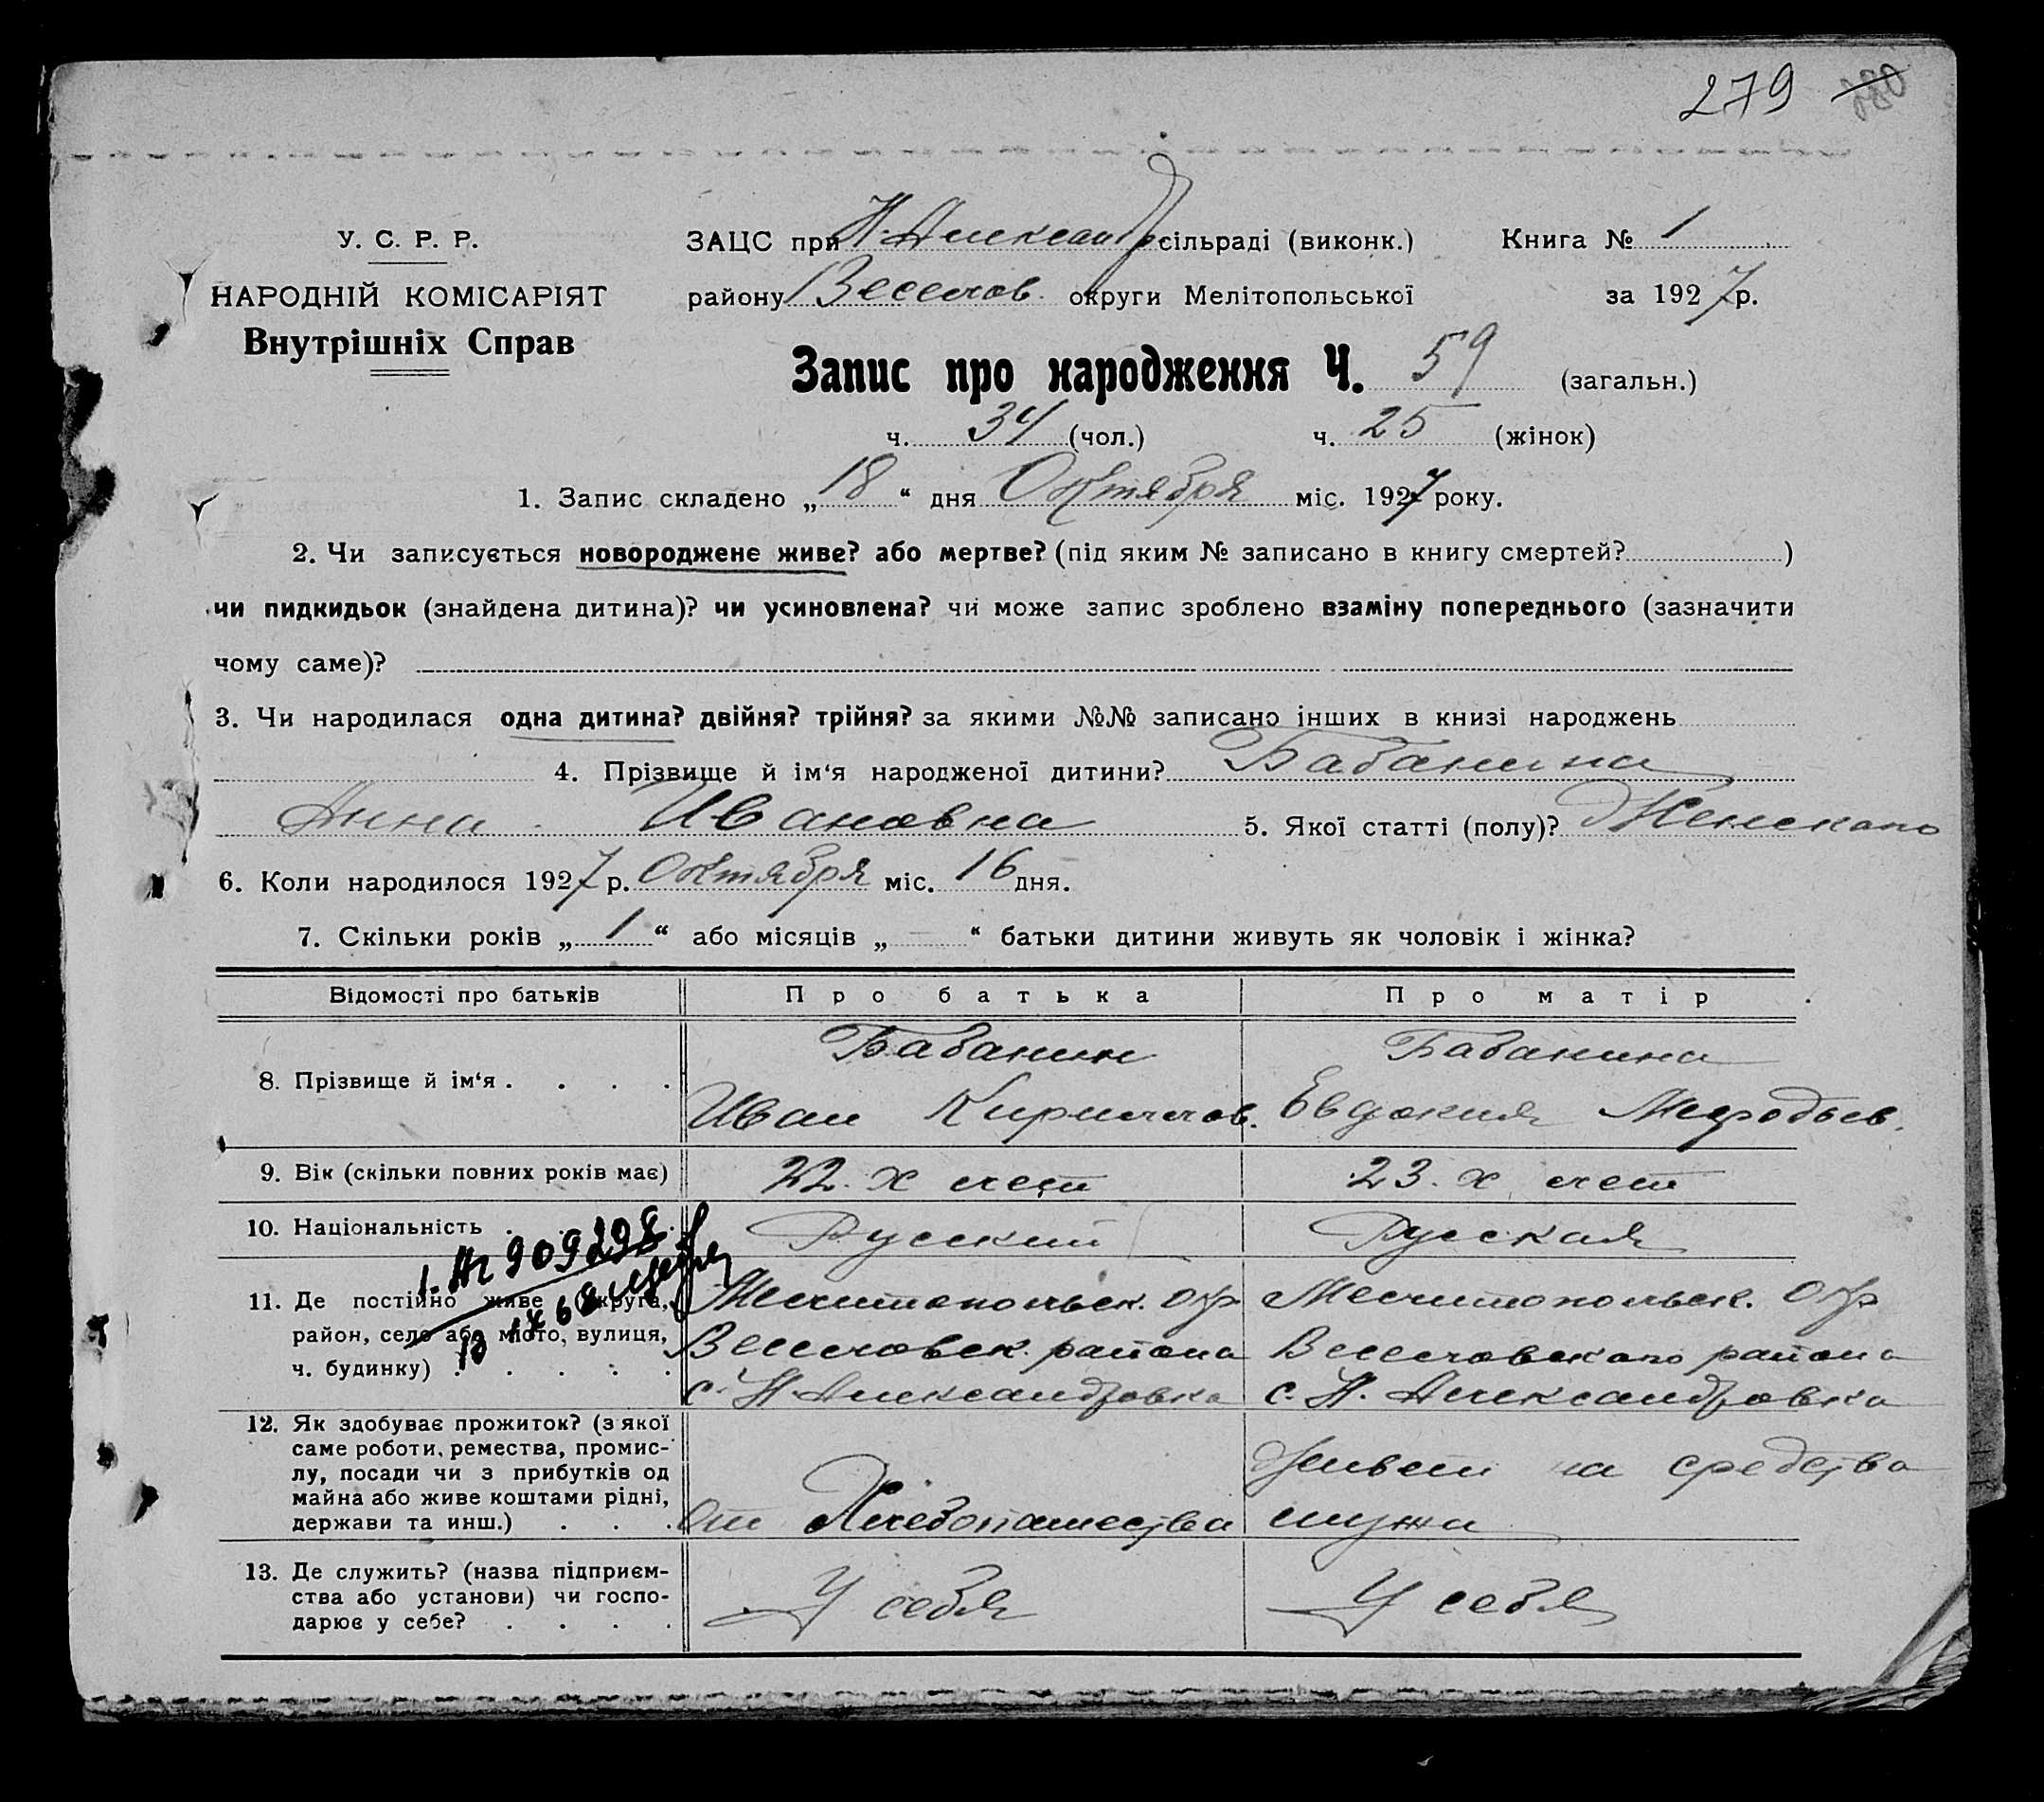 279 280
У. С. Р. Р.
НАРОДНІЙ КОМІСАРІЯТ
Внутрішніх Справ
ЗАЦС при Н-Александр сільраді (виконк.) Книга № 1
району Веселов. округи Мелітопольської за 1927 р.
Запис про народження Ч. 59 (загальн.)
ч. 34 (чол.) ч. 25 (жінок)
1. Запис складено „18“ дня Октября міс. 1927 року.
2. Чи записується новороджене живе? або мертве? (під яким № записано в книгу смертей? )
чи пидкидьок (знайдена дитина)? чи усиновлена? чи може запис зроблено взаміну попереднього (зазначити
чому саме)?
3. Чи народилася одна дитина? двійня? трійня? за якими №№ записано інших в книзі народжень
4. Прізвище й ім‘я народженої дитини? Бабанина
Анна Ивановна 5. Якої статті (полу)? Женского
6. Коли народилося 1927 р. Октября міс. 16 дня.
7. Скільки років „1“ або місяців „ “ батьки дитини живуть як чоловік і жінка?
Відомості про батьків Про батька Про матір
8. Прізвище й ім‘я . . . . Бабанин Бабанина
Иван Кириллов. Евдокия Мефодьев.
9. Вік (скільки повних років має) 22-х лет 23-х лет
10. Національність . . . Русский Русская
1. Яг 909298
11. Де постійно живе (округа, Мелитопольск. окр Мелитопольск. окр
район, село або місто, вулиця, Веселовск. района Веселовского района
ч. будинку) . . . . . с. Н Александровка с. Н. Александровка
12. Як здобуває прожиток? (з якої
саме роботи, ремества, промис-
лу, посади чи з прибутків од Живет на средства
майна або живе коштами рідні,
держави та инш.) . . . От Хлебопашества мужа
13. Де служить? (назва підприєм-
ства або установи) чи госпо- У себя У себя
дарює у себе? . . . .